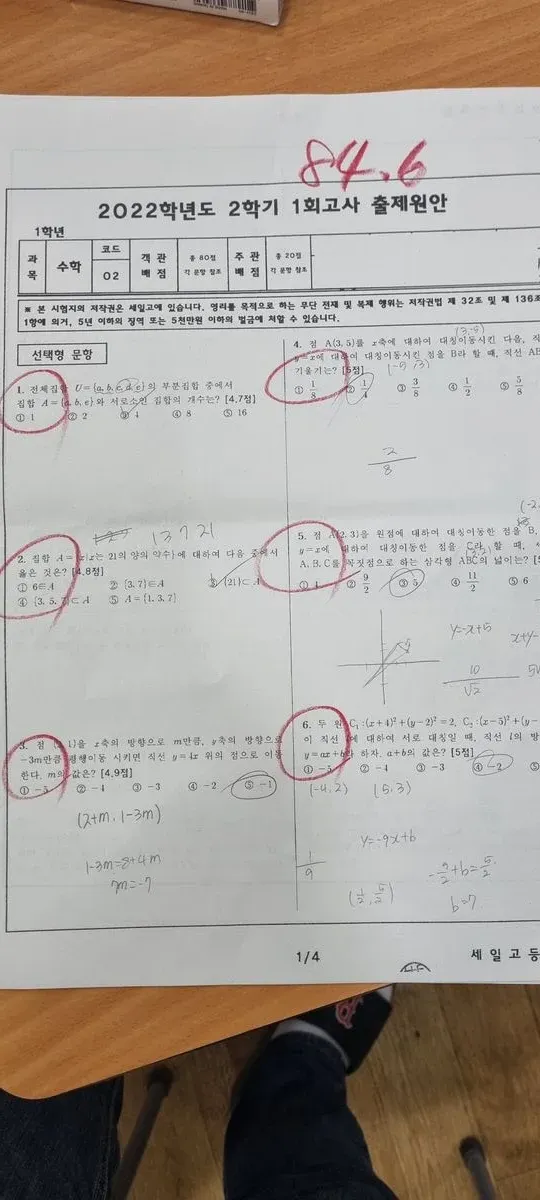 84.6
2022학년도 2학기 1회고사 출제원안
1학년
과목 수학 코드 02 객관배점 총 80점 각 문항 참조 주관배점 총 20점 각 문항 참조
※ 본 시험지의 저작권은 세일고에 있습니다. 영리를 목적으로 하는 무단 전재 및 복제 행위는 저작권법 제 32조 및 제 136조
1항에 의거, 5년 이하의 징역 또는 5천만원 이하의 벌금에 처할 수 있습니다.
선택형 문항
1. 전체집합 U={a, b, c, d, e}의 부분집합 중에서
집합 A={a, b, e}와 서로소인 집합의 개수는? [4.7점]
① 1 ② 2 ③ 4 ④ 8 ⑤ 16
1 3 7 21
2. 집합 A={x|x는 21의 양의 약수}에 대하여 다음 중에서
옳은 것은? [4.8점]
① 6∈A ② {3, 7}∈A ③ {21}⊂A
④ {3, 5, 7}⊂A ⑤ A={1, 3, 7}
3. 점 (2, 1)을 x축의 방향으로 m만큼, y축의 방향으로
-3m만큼 평행이동 시키면 직선 y=4x 위의 점으로 이동
한다. m의 값은? [4.9점]
① -5 ② -4 ③ -3 ④ -2 ⑤ -1
(2+m, 1-3m)
1-3m=8+4m
7m=-7
(3,-5)
4. 점 A(3, 5)를 x축에 대하여 대칭이동시킨 다음, 직
y=x에 대하여 대칭이동시킨 점을 B라 할 때, 직선 AB
기울기는? [5점]
(-5, 3)
① 1/8 ② 1/4 ③ 3/8 ④ 1/2 ⑤ 5/8
2/8
(-2
5. 점 A(2, 3)을 원점에 대하여 대칭이동한 점을 B,
y=x에 대하여 대칭이동한 점을 C라 할 때,
A, B, C를 꼭짓점으로 하는 삼각형 ABC의 넓이는?
① 4 ② 9/2 ③ 5 ④ 11/2 ⑤ 6
y=-x+5
x+y-
10/√2
6. 두 원 C₁:(x+4)²+(y-2)²=2, C₂:(x-5)²+(y-
이 직선 l에 대하여 서로 대칭일 때, 직선 l의 방
y=ax+b라 하자. a+b의 값은? [5점]
① -5 ② -4 ③ -3 ④ -2 ⑤
(-4,2) (5,3)
y=-9x+b
1/9
-9/2+b=5/2
(1/2, 5/2)
b=7
1/4
세일고등